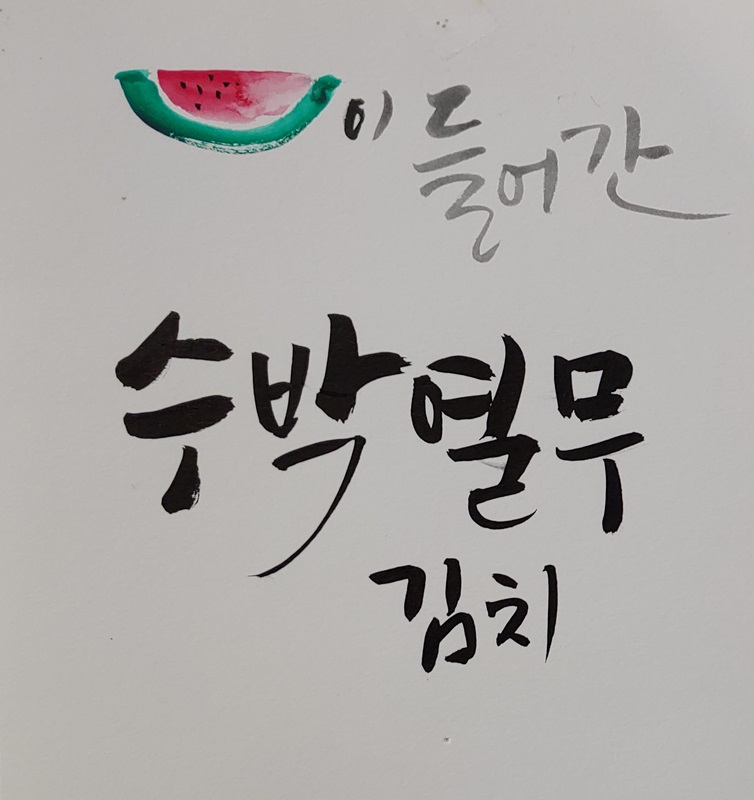 이 들어간
수박열무
김치